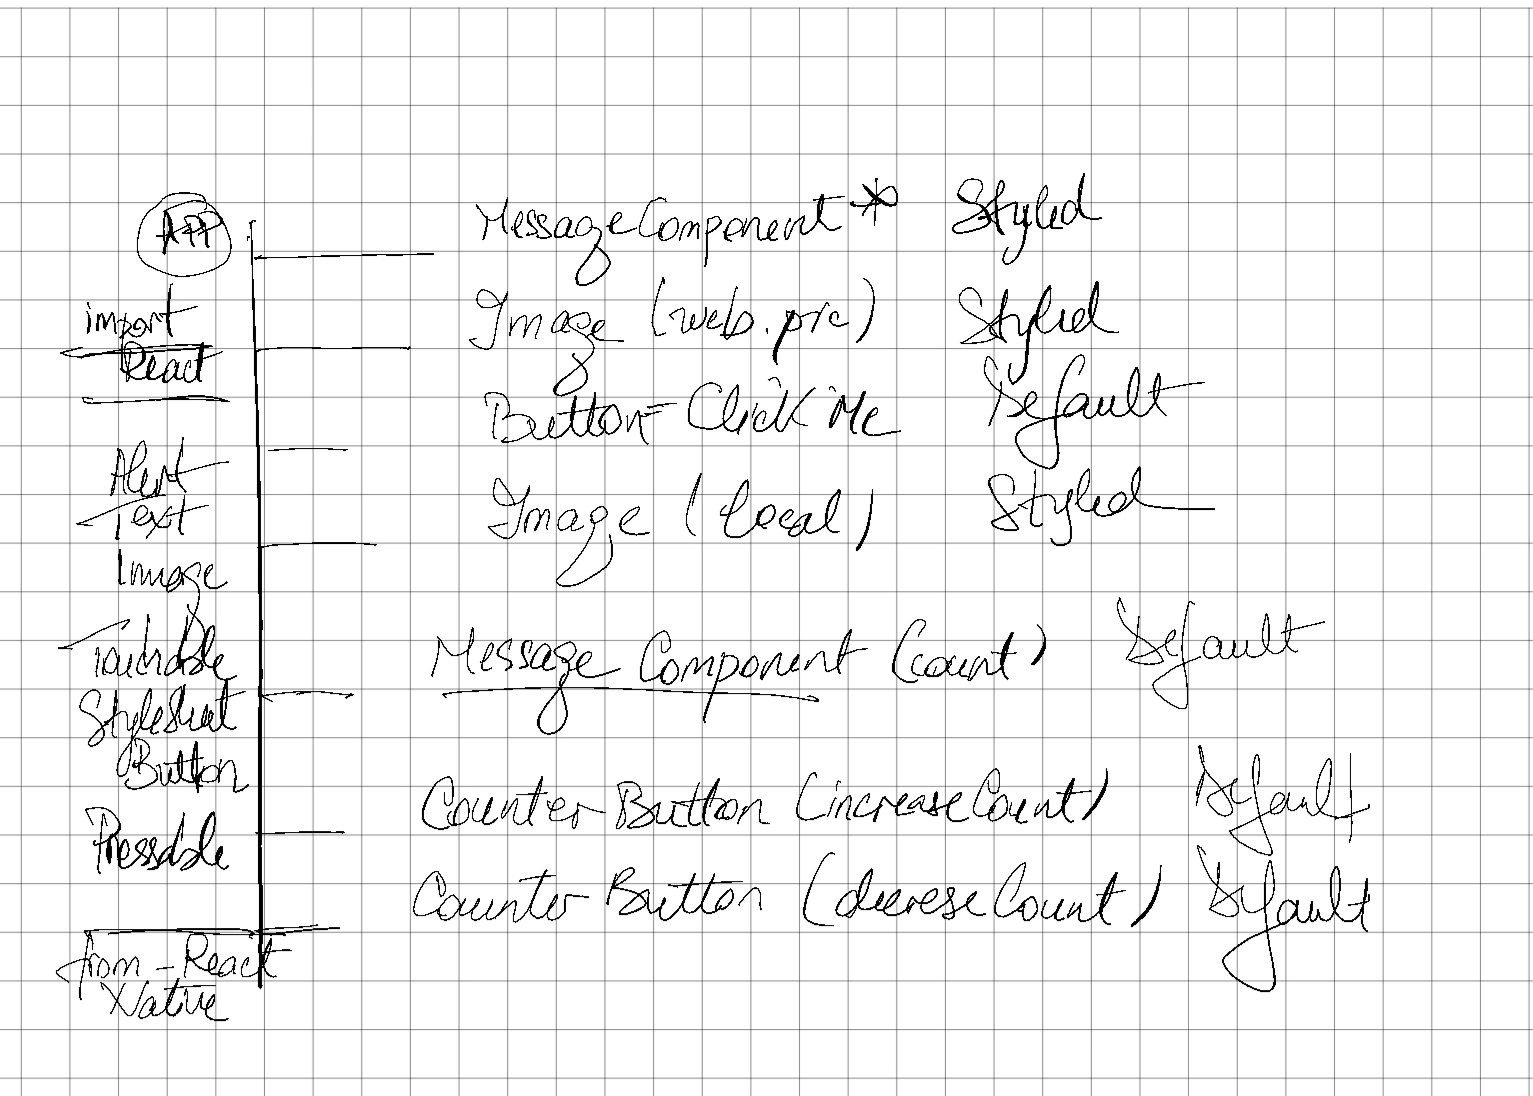 APP
import
React
Alert
Text
Image
Touchable
StyleSheet
Button
Pressable
from - React
Native
MessageComponent* Styled
Image (web.pic) Styled
Button - Click Me Default
Image (local) Styled
Message Component (count) Default
Counter Button (increaseCount) Default
Counter Button (decreseCount) Default